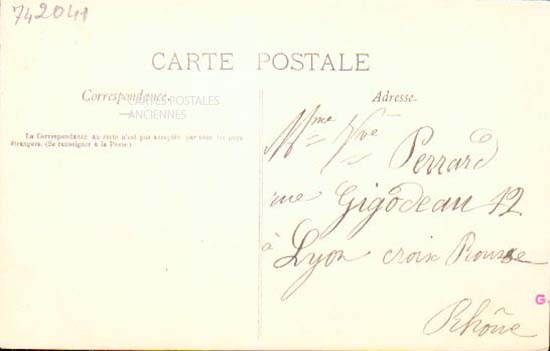 742041
CARTE POSTALE
Correspondance.
CARTES POSTALES
ANCIENNES
La Correspondance au recto n'est pas acceptée par tous les pays
étrangers. (Se renseigner à la Poste.)
Adresse.
Mme Vve
Perrard
rue Gigodeau 12
à Lyon croix Rousse
Rhône
G.